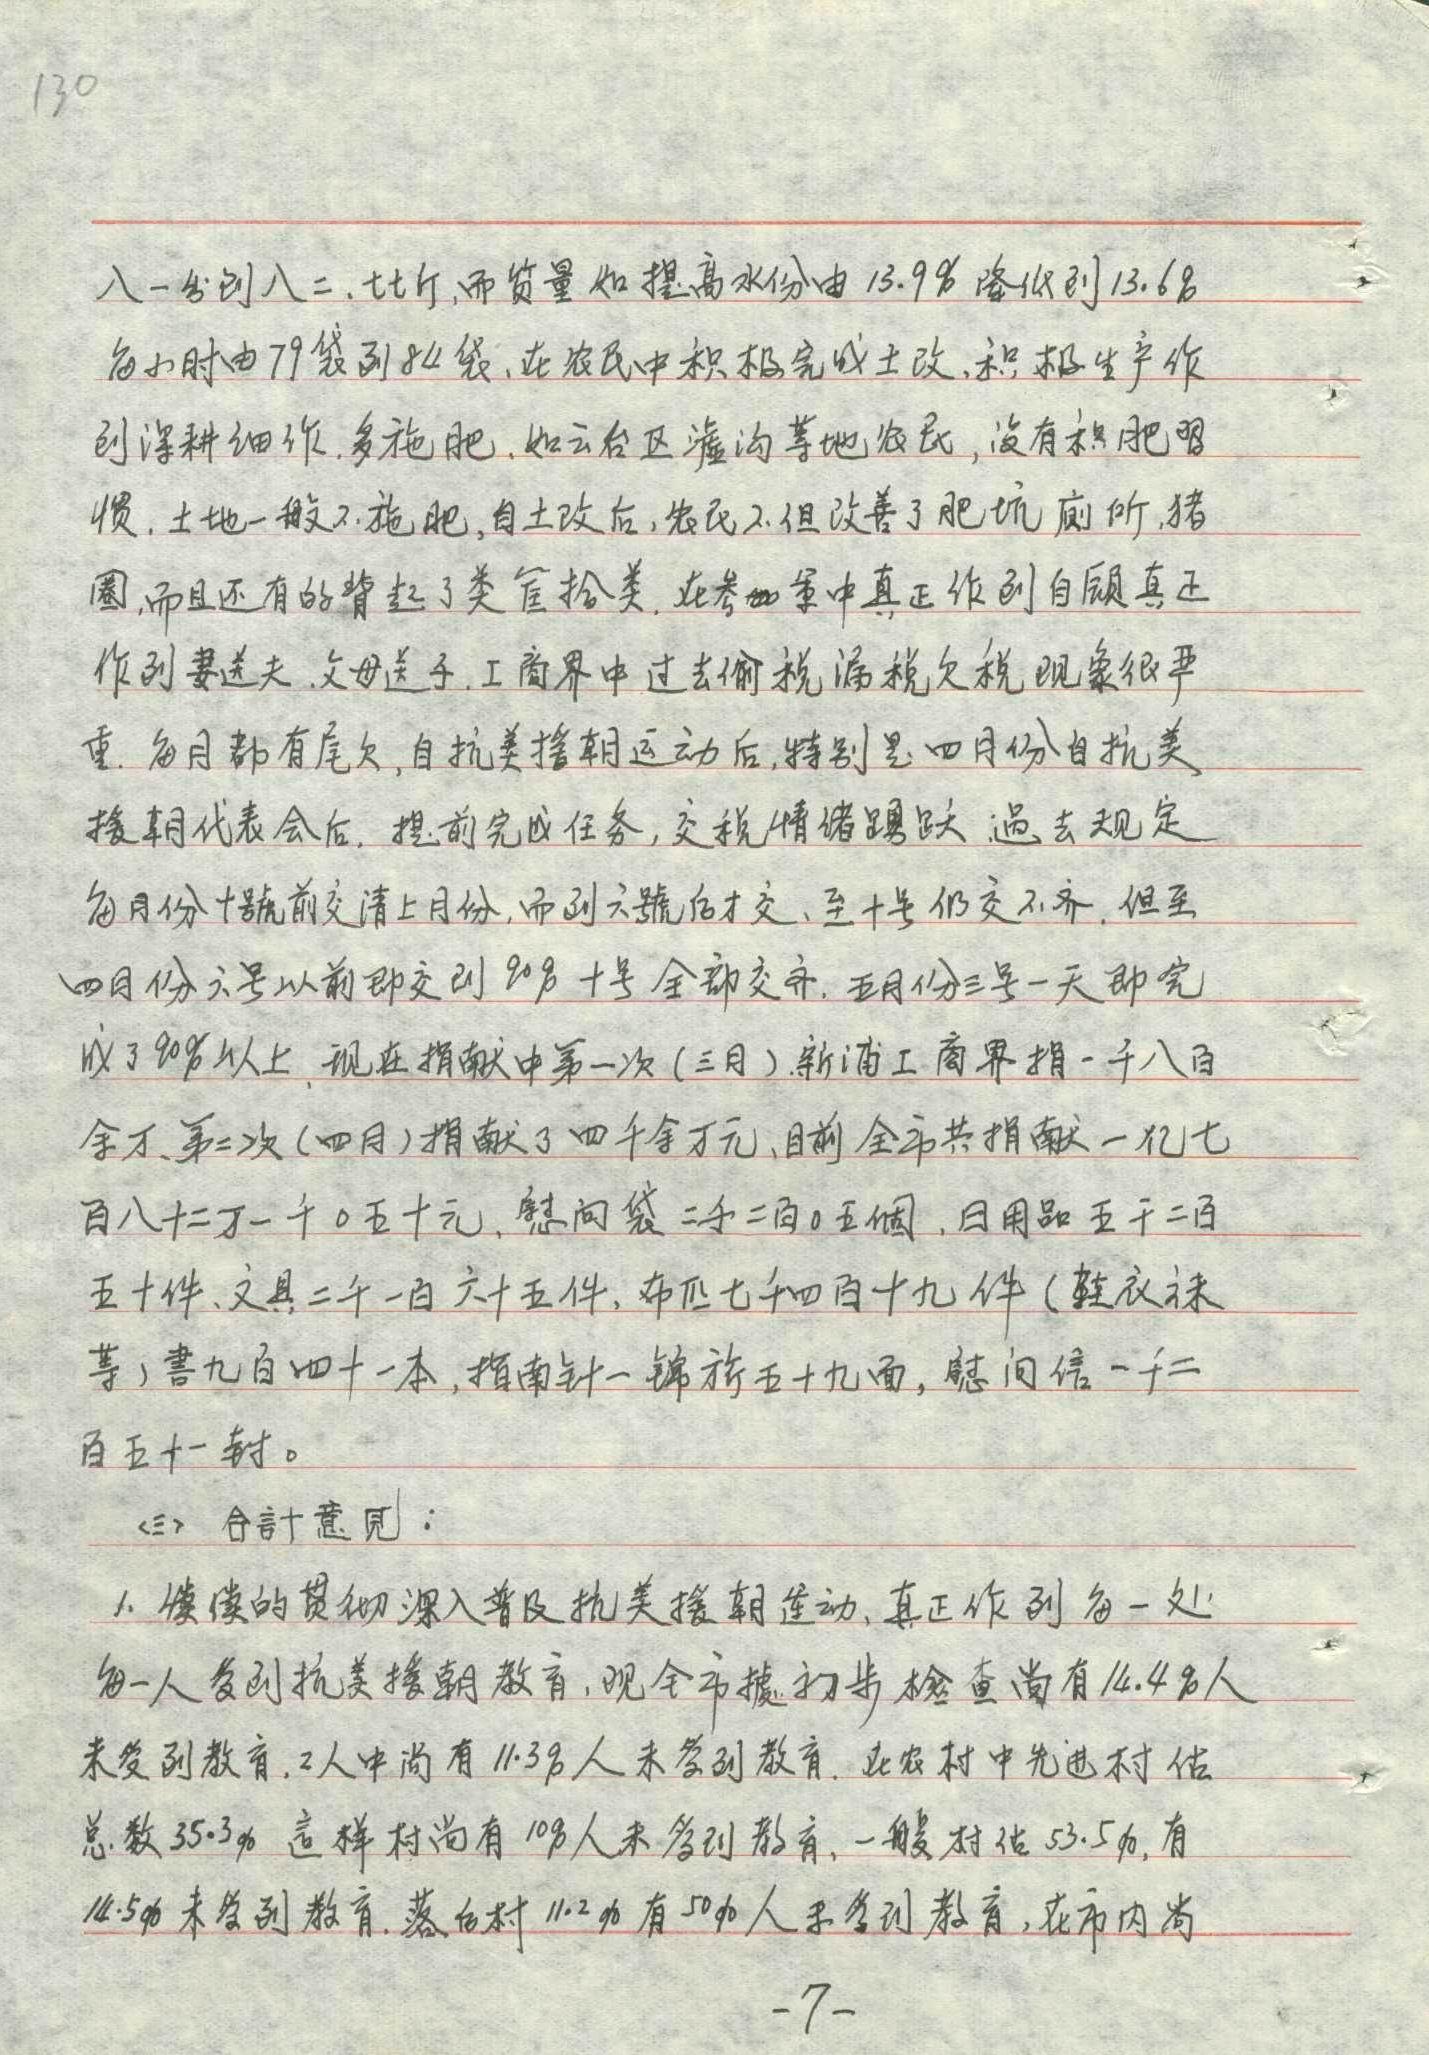 130
八一分到八二.七七斤,而质量如提高水份由13.9%降低到13.6%
每小时由79袋到84袋、在农民中积极完成土改、积极生产作
到深耕细作.多施肥.如云台区墟沟等地农民,没有积肥習
惯.土地一般不施肥,自土改后,农民不但改善了肥坑厕所,猪
圈,而且还有的背起了类筐拾类.在参加军中真正作到自願真正
作到妻送夫.父母送子.工商界中过去偷税漏税欠税现象很严
重.每月都有尾欠,自抗美援朝运动后,特别是四月份自抗美
援朝代表会后.提前完成任务,交税情绪踴跃.過去规定
每月份十號前交清上月份,而到六號后才交、至十号仍交不齐.但至
四月份六号以前即交到90%十号全部交齐.五月份三号一天即完
成了90%以上.现在捐献中第一次(三月).新浦工商界捐一千八百
余万、第二次(四月)捐献了四千余万元、目前全市共捐献一亿七
百八十二万一千0五十元、慰问袋二千二百0五個.日用品五千二百
五十件、文具二千一百六十五件、布匹七千四百十九件(鞋衣袜
等)書九百四十一本,指南针一锦旂五十九面,慰问信一千二
百五十一封。
<三> 合計意見:
1. 继續的貫彻深入普及抗美援朝運动、真正作到每一处
每一人受到抗美援朝教育,现全市據初步检查尚有14.4%人
未受到教育.工人中尚有11.3%人未受到教育.在农村中先进村估
总数35.3%這样村尚有10%人未受到教育、一般村估53.5%,有
14.5%未受到教育.落后村11.2%有50%人未受到教育,在市内尚
-7-